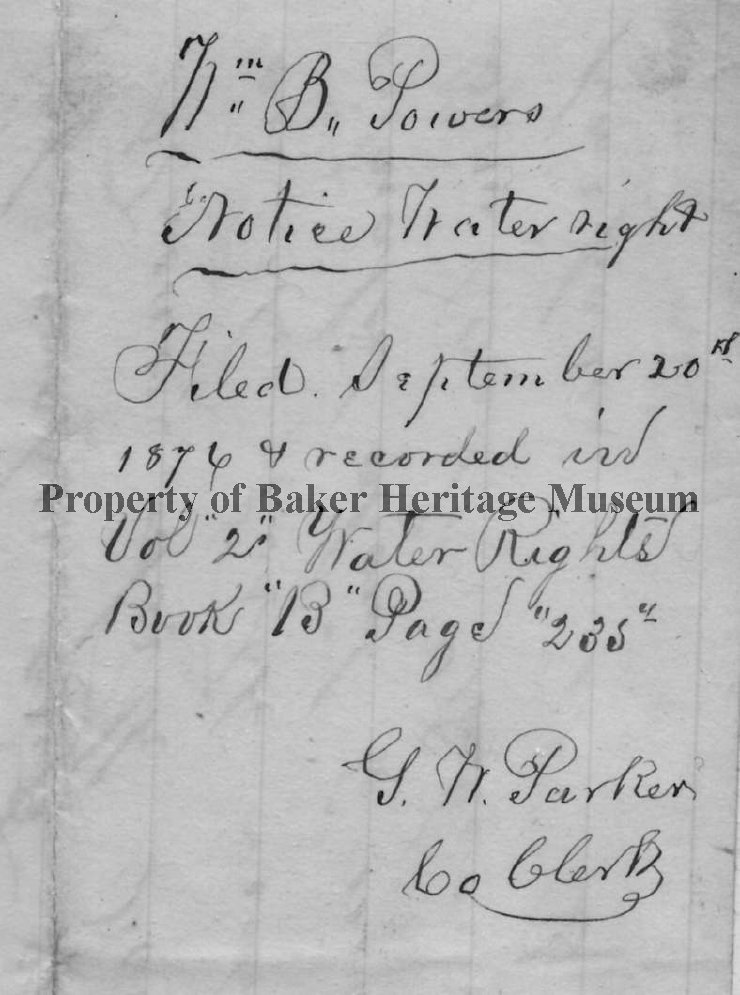 Wm B,, Powers
Notice Water right
Filed September 20th
1876 & recorded in
Property of Baker Heritage Museum
Vol "2" Water Rights
Book "B" Page "235"
G. W. Parker
Co Clerk